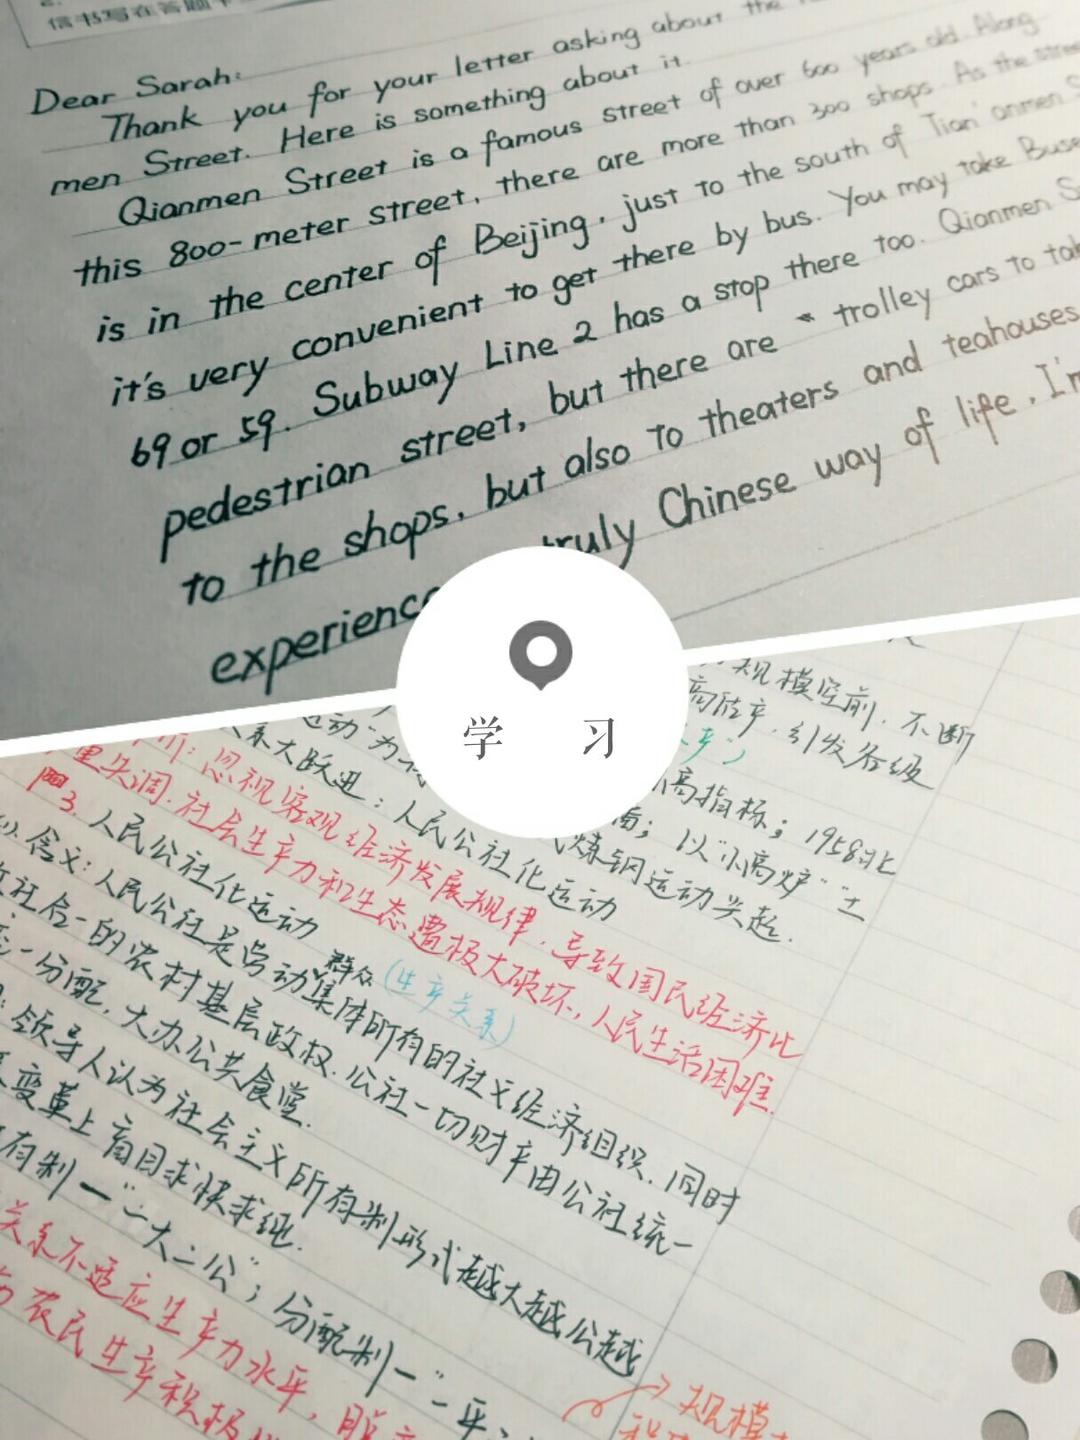 信书写在答题卡
Dear Sarah:
Thank you for your letter asking about the
men Street. Here is something about it.
Qianmen Street is a famous street of over 600 years old. Along
this 800-meter street, there are more than 300 shops. As the street
is in the center of Beijing, just to the south of Tian'anmen
it's very convenient to get there by bus. You may take Buse
69 or 59. Subway Line 2 has a stop there too. Qianmen S
pedestrian street, but there are trolley cars to tak
to the shops, but also to theaters and teahouses
experience truly Chinese way of life. I'm
学 习
规模空前,不断
高估产,引发各级
高指标;1958年北
面;以"小高炉""土
炼钢运动兴起.
运动"为
大跃进:人民公社化运动
忽视客观经济发展规律,导致国民经济比
重失调.社会生产力和生态遭极大破坏,人民生活困难.
3.人民公社化运动
含义:人民公社是劳动群众集体所有的社义经济组织.同时
(生产关系)
政社合一的农村基层政权.公社一切财产由公社统一
分配,大办公共食堂.
领导人认为社会主义所有制形式越大越公越
变革上盲目求快求纯.
有制一"一大二公";分配制一"一平
关系不适应生产力水平,脱
农民生产积极
规模